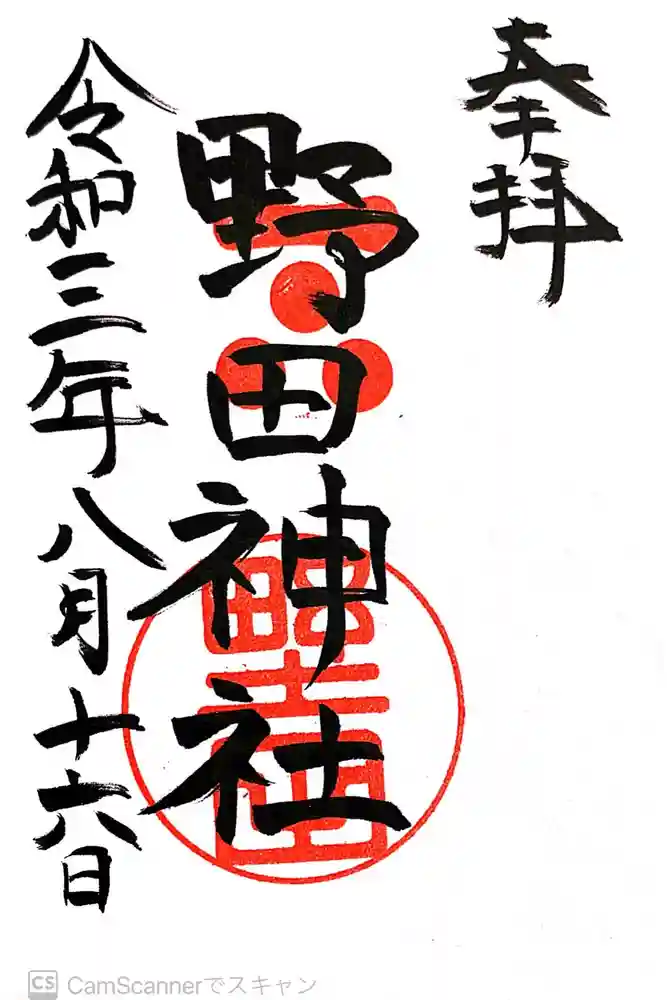 奉拝
野田神社
令和三年八月十六日
CS CamScannerでスキャン